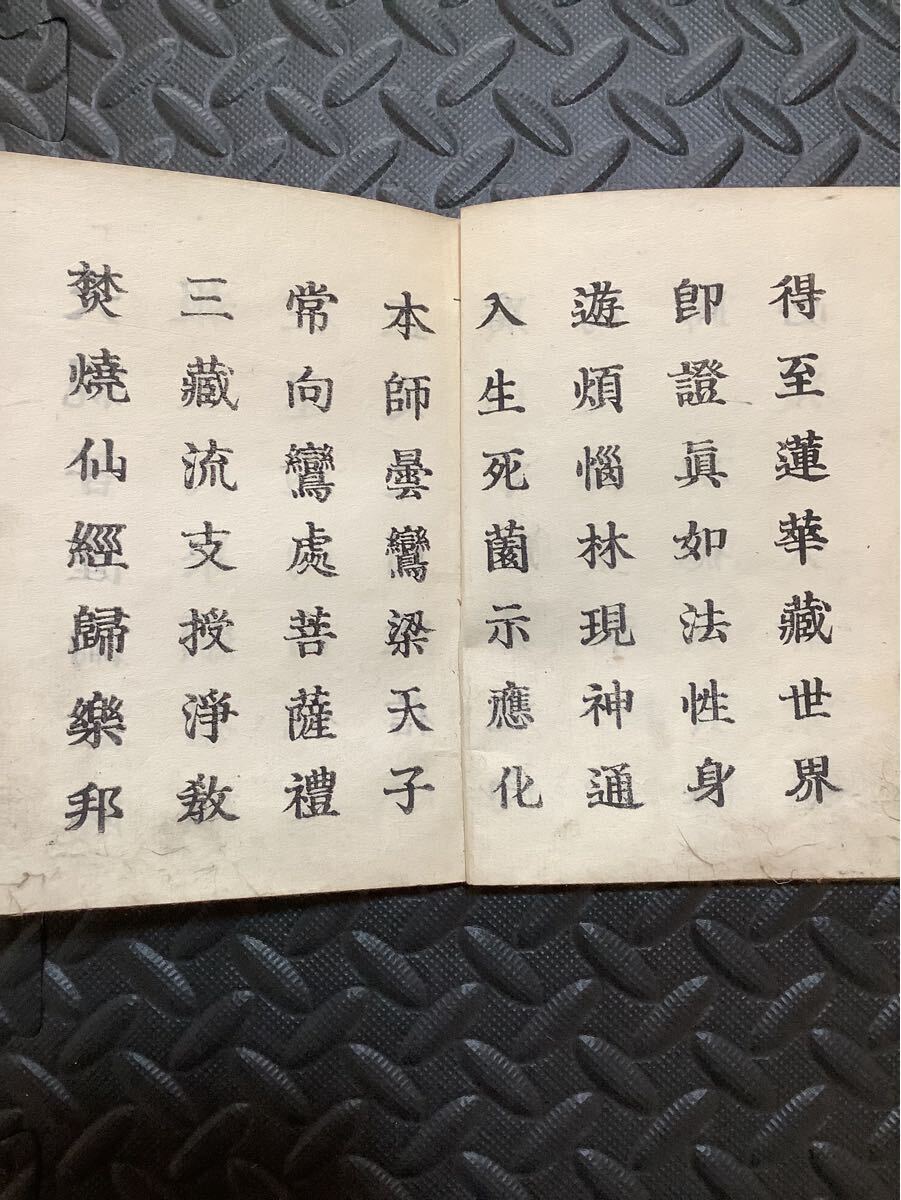 得至蓮華藏世界
卽證眞如法性身
遊煩惱林現神通
入生死薗示應化
本師曇鸞梁天子
常向鸞處菩薩禮
三藏流支授淨敎
焚燒仙經歸樂邦